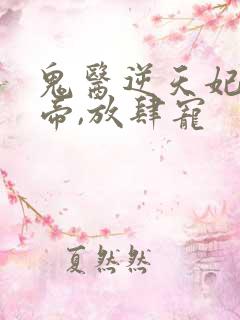 鬼醫逆天妃
帝,放肆寵
夏然然